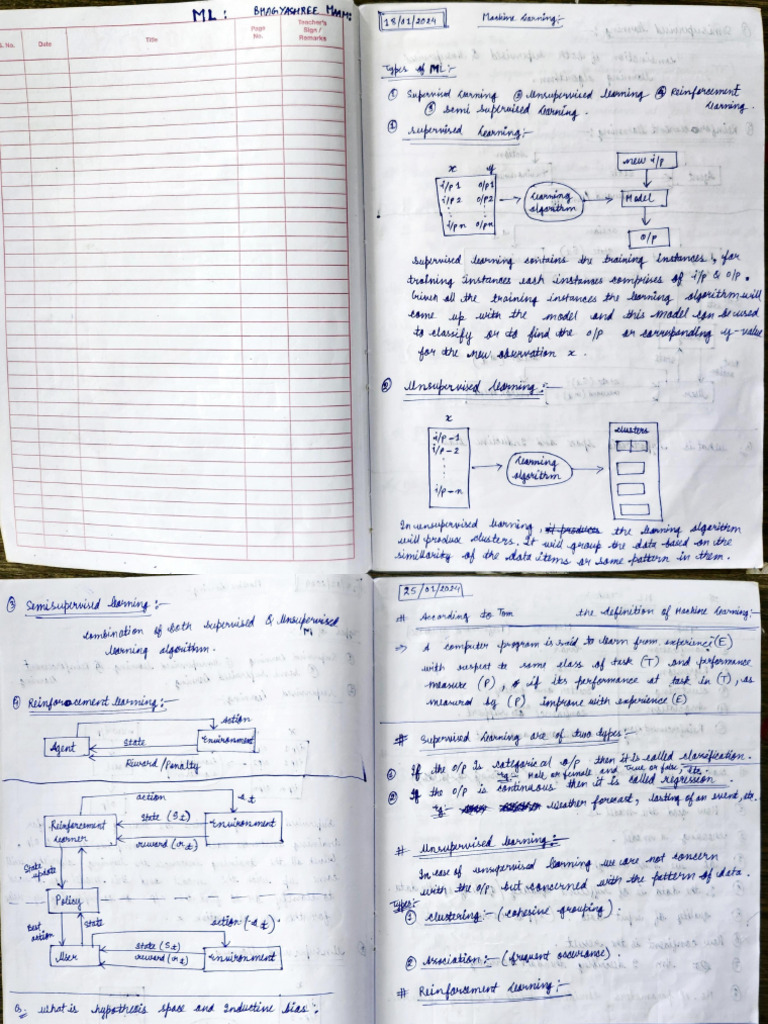 ML: BHAGYASHREE MAAM:
S. No. Date Title Page No. Teacher's Sign / Remarks
18/01/2024 Machine Learning:-
Types of ML:-
① Supervised Learning ② Unsupervised learning ④ Reinforcement
Learning.
③ Semi Supervised Learning.
① Supervised Learning:-
x y
i/p 1 o/p1
i/p 2 o/p2
i/pn o/pn
Learning
algorithm
new i/p
Model
o/p
Supervised learning contains the training instances, for
training instances each instances comprises of i/p & o/p.
Given all the training instances the learning algorithm will
come up with the model and this model can be used
to classify or to find the o/p or corresponding y-value
for the new observation x.
② Unsupervised Learning:-
x
i/p-1
i/p-2
i/p-n
Learning
algorithm
clusters
In unsupervised learning, the learning algorithm
will produce clusters. It will group the data based on the
similarity of the data items or some pattern in them.
③ Semisupervised learning:-
combination of both supervised & Unsupervised
learning algorithm.
④ Reinforcement learning:-
action
Agent State Environment
Reward/Penalty
action
Reinforcement
Learner
State (St)
reward (rt)
Environment
State
update
Policy
Best
action
State
action
User
State (St)
reward (rt)
Environment
Q: What is hypothesis space and Inductive bias:
25/01/2024
# According to Tom the definition of Machine Learning:-
⇒ A computer program is said to learn from experience (E)
with respect to some class of task (T) and performance
measure (P), if its performance at task in (T), as
measured by (P) improve with experience (E)
# Supervised Learning are of two types:-
① if the o/p is categorical o/p then it is called classification.
Eg- Male or female and True or false, etc.
② If the o/p is continuous then it is called regression.
Eg- weather forecast, of an event, etc.
# Unsupervised learning:-
In case of unsupervised learning we are not concern
with the o/p but concerned with the pattern of data.
Types:-
① Clustering:- (cohesive grouping).
② Association:- (frequent occurance).
# Reinforcement Learning:-